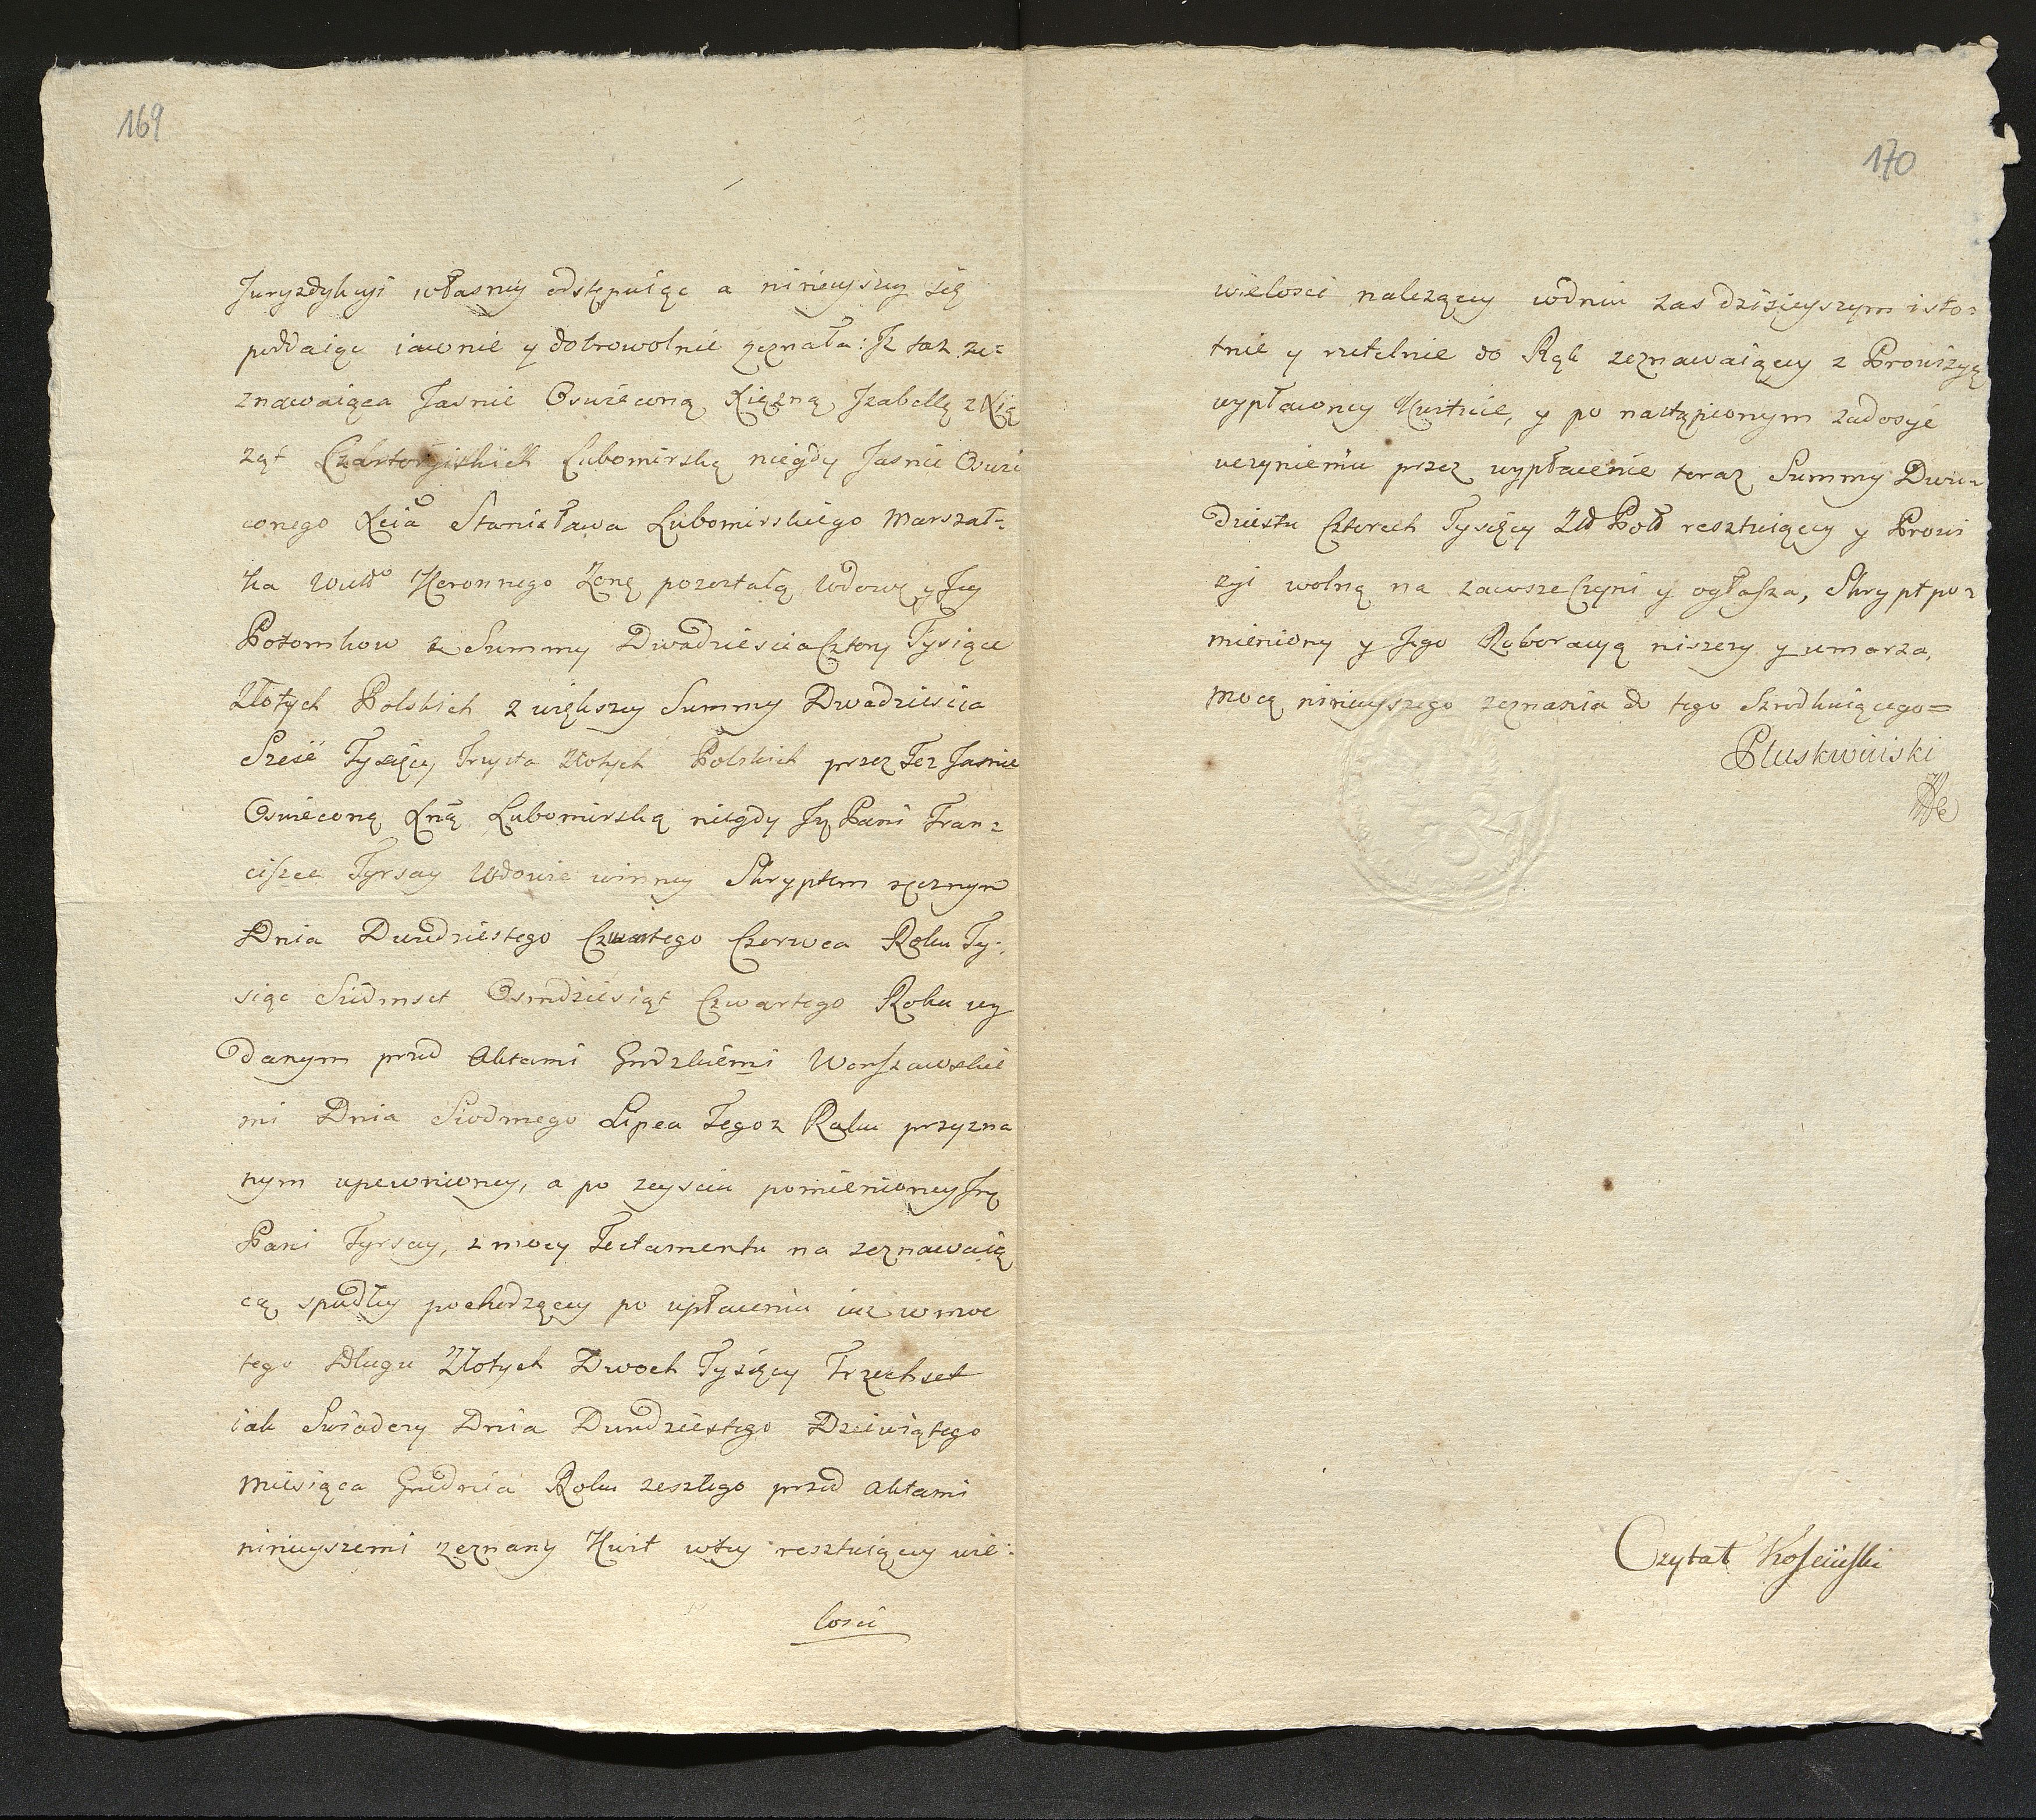 169
Juryzdykcyi własney odstępuiąc a ninieyszey się
poddaiąc iawnie y dobrowolnie zeznała: Iż taż ze=
znawaiąca Jasnie Oswieconą Xiężną Izabellę z Xią
ząt Czartoryiskich Lubomirską niegdy Jasnie Oswie
conego Xcia Stanisława Lubomirskiego Marszał=
ka Wielkº Koronnego Zonę pozostałą Wdowę y Jey
Potomkow z Summy Dwadziescia Cztery Tysiące
Złotych Polskich z większey Summy Dwadziescia
Szesć Tysięcy Trzysta Złotych Polskich przez Też Jasnie
Oswieconą Xnę Lubomirską niegdy Jey Pani Fran=
ciszce Tyrsay Wdowie winney Skryptem ręcznym
Dnia Dwudziestego Czwartego Czerwca Roku Ty=
siąc Siedmset Osmdziesiąt Czwartego Roku wy
danym przed Aktami Grodzkiemi Warszawskie
mi Dnia Siodmego Lipca Tegoż Roku przyzna
nym upewnioney, a po zeysciu pomienioney Jey
Pani Tyrsay, z mocy Testamentu na zeznawaią
cą spadłey pochodzącey po upłaceniu iuz w moc
tego Długu Złotych Dwoch Tysięcy Trzechset
iak Swiadczy Dnia Dwudziestego Dziewiątego
Miesiąca Grudnia Roku zeszłego przed Aktami
ninieyszemi zeznany Kwit w tey resztuiącey wie=
losci
170
wielosci nalezącey w dniu zas dzisieyszym isto=
tnie y rzetelnie do Rąk zeznawaiącey z Prowizyą
wypłaconey Kwituie, y po nastąpionym zadosyć
uczynieniu przez wypłacenie teraz Summy Dwu=
dziestu Czterech Tysięcy Złł Poll resztuiącey y Prowi
zyi wolną na zawsze Czyni y ogłasza, Skrypt po=
mieniony y Jego Roboracyą niszczy y umarza,
Mocą ninieyszego zeznania do tego Szrodkuiącego=
Pluskwinski
Czytał Kosciński